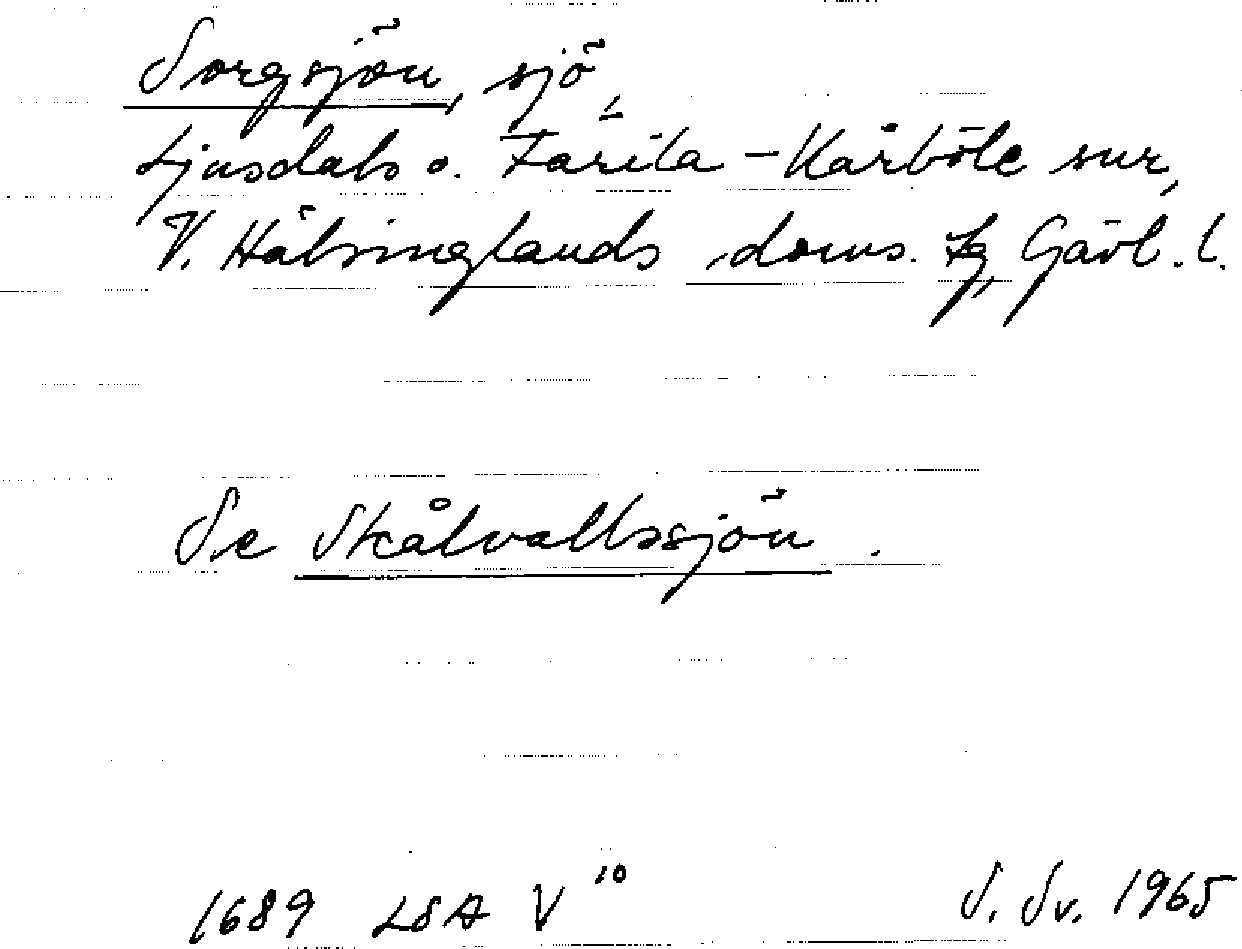 Sorgsjön, sjö,
Ljusdals o. Färila-Kårböle snr,
V. Hälsinglands doms. tg, Gävl. l.
Se Skålvallssjön.
1689 LSA V¹⁰
S. Sv. 1965